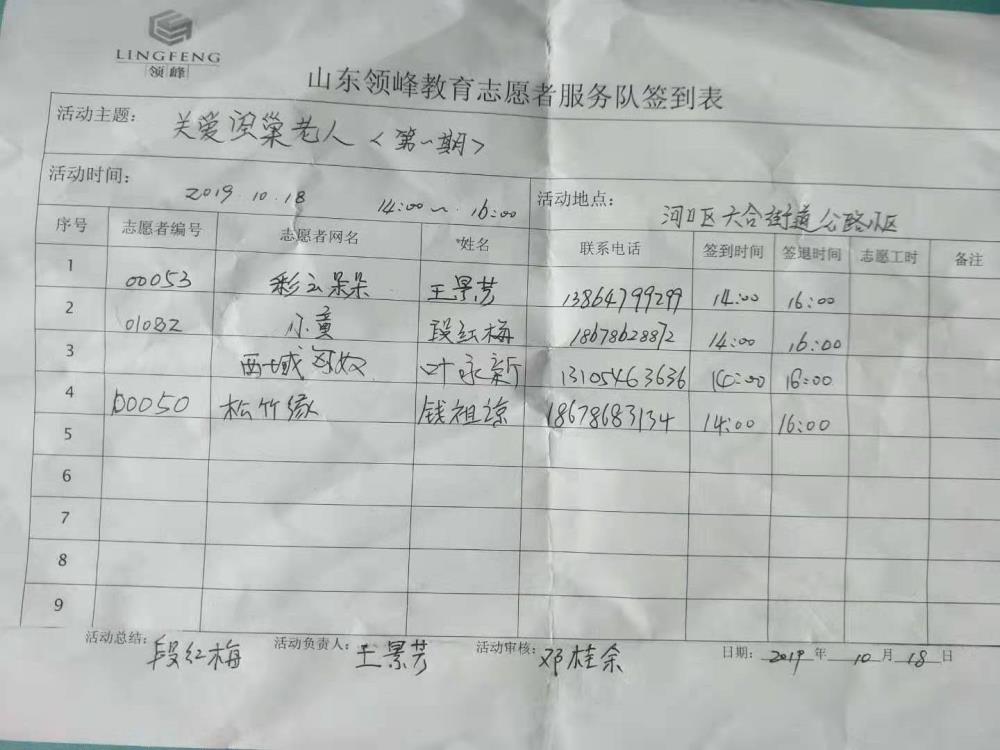 LINGFENG
领峰
山东领峰教育志愿者服务队签到表
活动主题： 关爱空巢老人＜第一期＞
活动时间： 2019.10.18 14:00～16:00 活动地点： 河口区六合街道公路小区
序号 志愿者编号 志愿者网名 姓名 联系电话 签到时间 签退时间 志愿工时 备注
1 00053 彩云朵朵 王景芳 13864799299 14:00 16:00
2 01082 小童 段红梅 18678628872 14:00 16:00
3 西域 叶永新 13105463636 14:00 16:00
4 00050 松竹缘 钱祖谅 18678683134 14:00 16:00
5
6
7
8
9
活动总结： 段红梅 活动负责人： 王景芳 活动审核： 邓桂余 日期： 2019 年 10 月 18 日